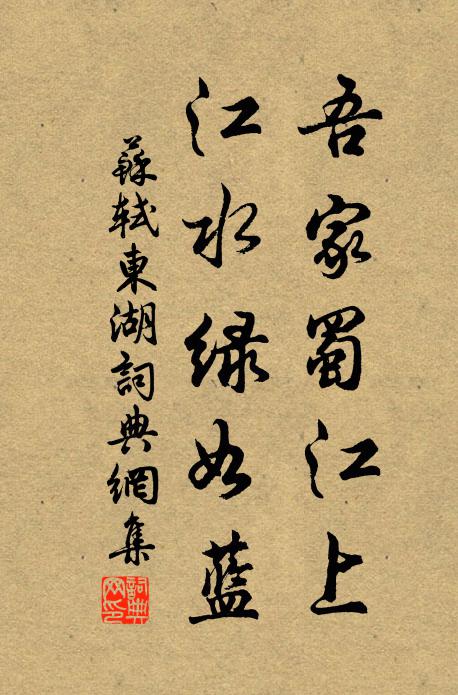 吾家蜀江上
江水绿如藍
蘇軾東湖詞典網集
詞典網印